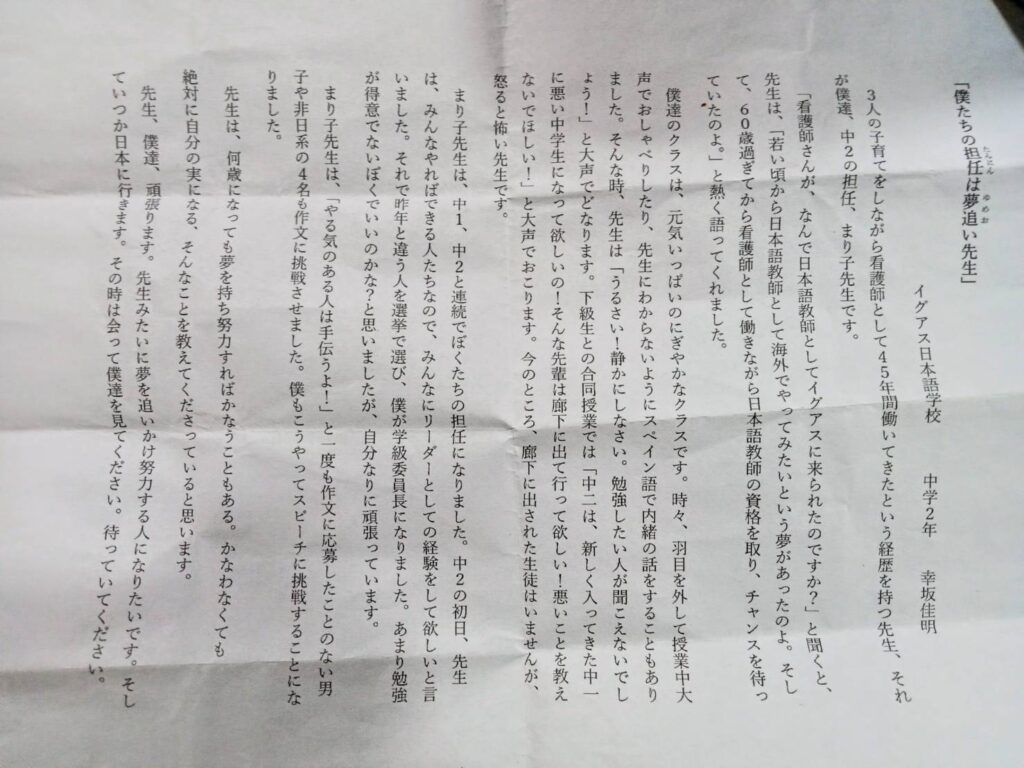 「僕たちの担任は夢追い先生」
イグアス日本語学校　中学2年　幸坂佳明
3人の子育てをしながら看護師として45年間働いてきたという経歴を持つ先生、それ
が僕達、中2の担任、まり子先生です。
「看護師さんが、なんで日本語教師としてイグアスに来られたのですか?」と聞くと、
先生は、「若い頃から日本語教師として海外でやってみたいという夢があったのよ。そし
て、60歳過ぎてから看護師として働きながら日本語教師の資格を取り、チャンスを待っ
ていたのよ。」と熱く語ってくれました。
僕達のクラスは、元気いっぱいのにぎやかなクラスです。時々、羽目を外して授業中大
声でおしゃべりしたり、先生にわからないようにスペイン語で内緒の話をすることもあり
ました。そんな時、先生は「うるさい!静かにしなさい。勉強したい人が聞こえないでし
ょう!」と大声でどなります。下級生との合同授業では「中二は、新しく入ってきた中一
に悪い中学生になって欲しいの!そんな先輩は廊下に出て行って欲しい!悪いことを教え
ないでほしい!」と大声でおこります。今のところ、廊下に出された生徒はいませんが、
怒ると怖い先生です。
まり子先生は、中1、中2と連続でぼくたちの担任になりました。中2の初日、先生
は、みんなやればできる人たちなので、みんなにリーダーとしての経験をして欲しいと言
いました。それで昨年と違う人を選挙で選び、僕が学級委員長になりました。あまり勉強
が得意でないぼくでいいのかな?と思いましたが、自分なりに頑張っています。
まり子先生は、「やる気のある人は手伝うよ!」と一度も作文に応募したことのない男
子や非日系の4名も作文に挑戦させました。僕もこうやってスピーチに挑戦することにな
りました。
先生は、何歳になっても夢を持ち努力すればかなうこともある。かなわなくても
絶対に自分の実になる、そんなことを教えてくださっていると思います。
先生、僕達、頑張ります。先生みたいに夢を追いかけ努力する人になりたいです。そし
ていつか日本に行きます。その時は会って僕達を見てください。待っていてください。